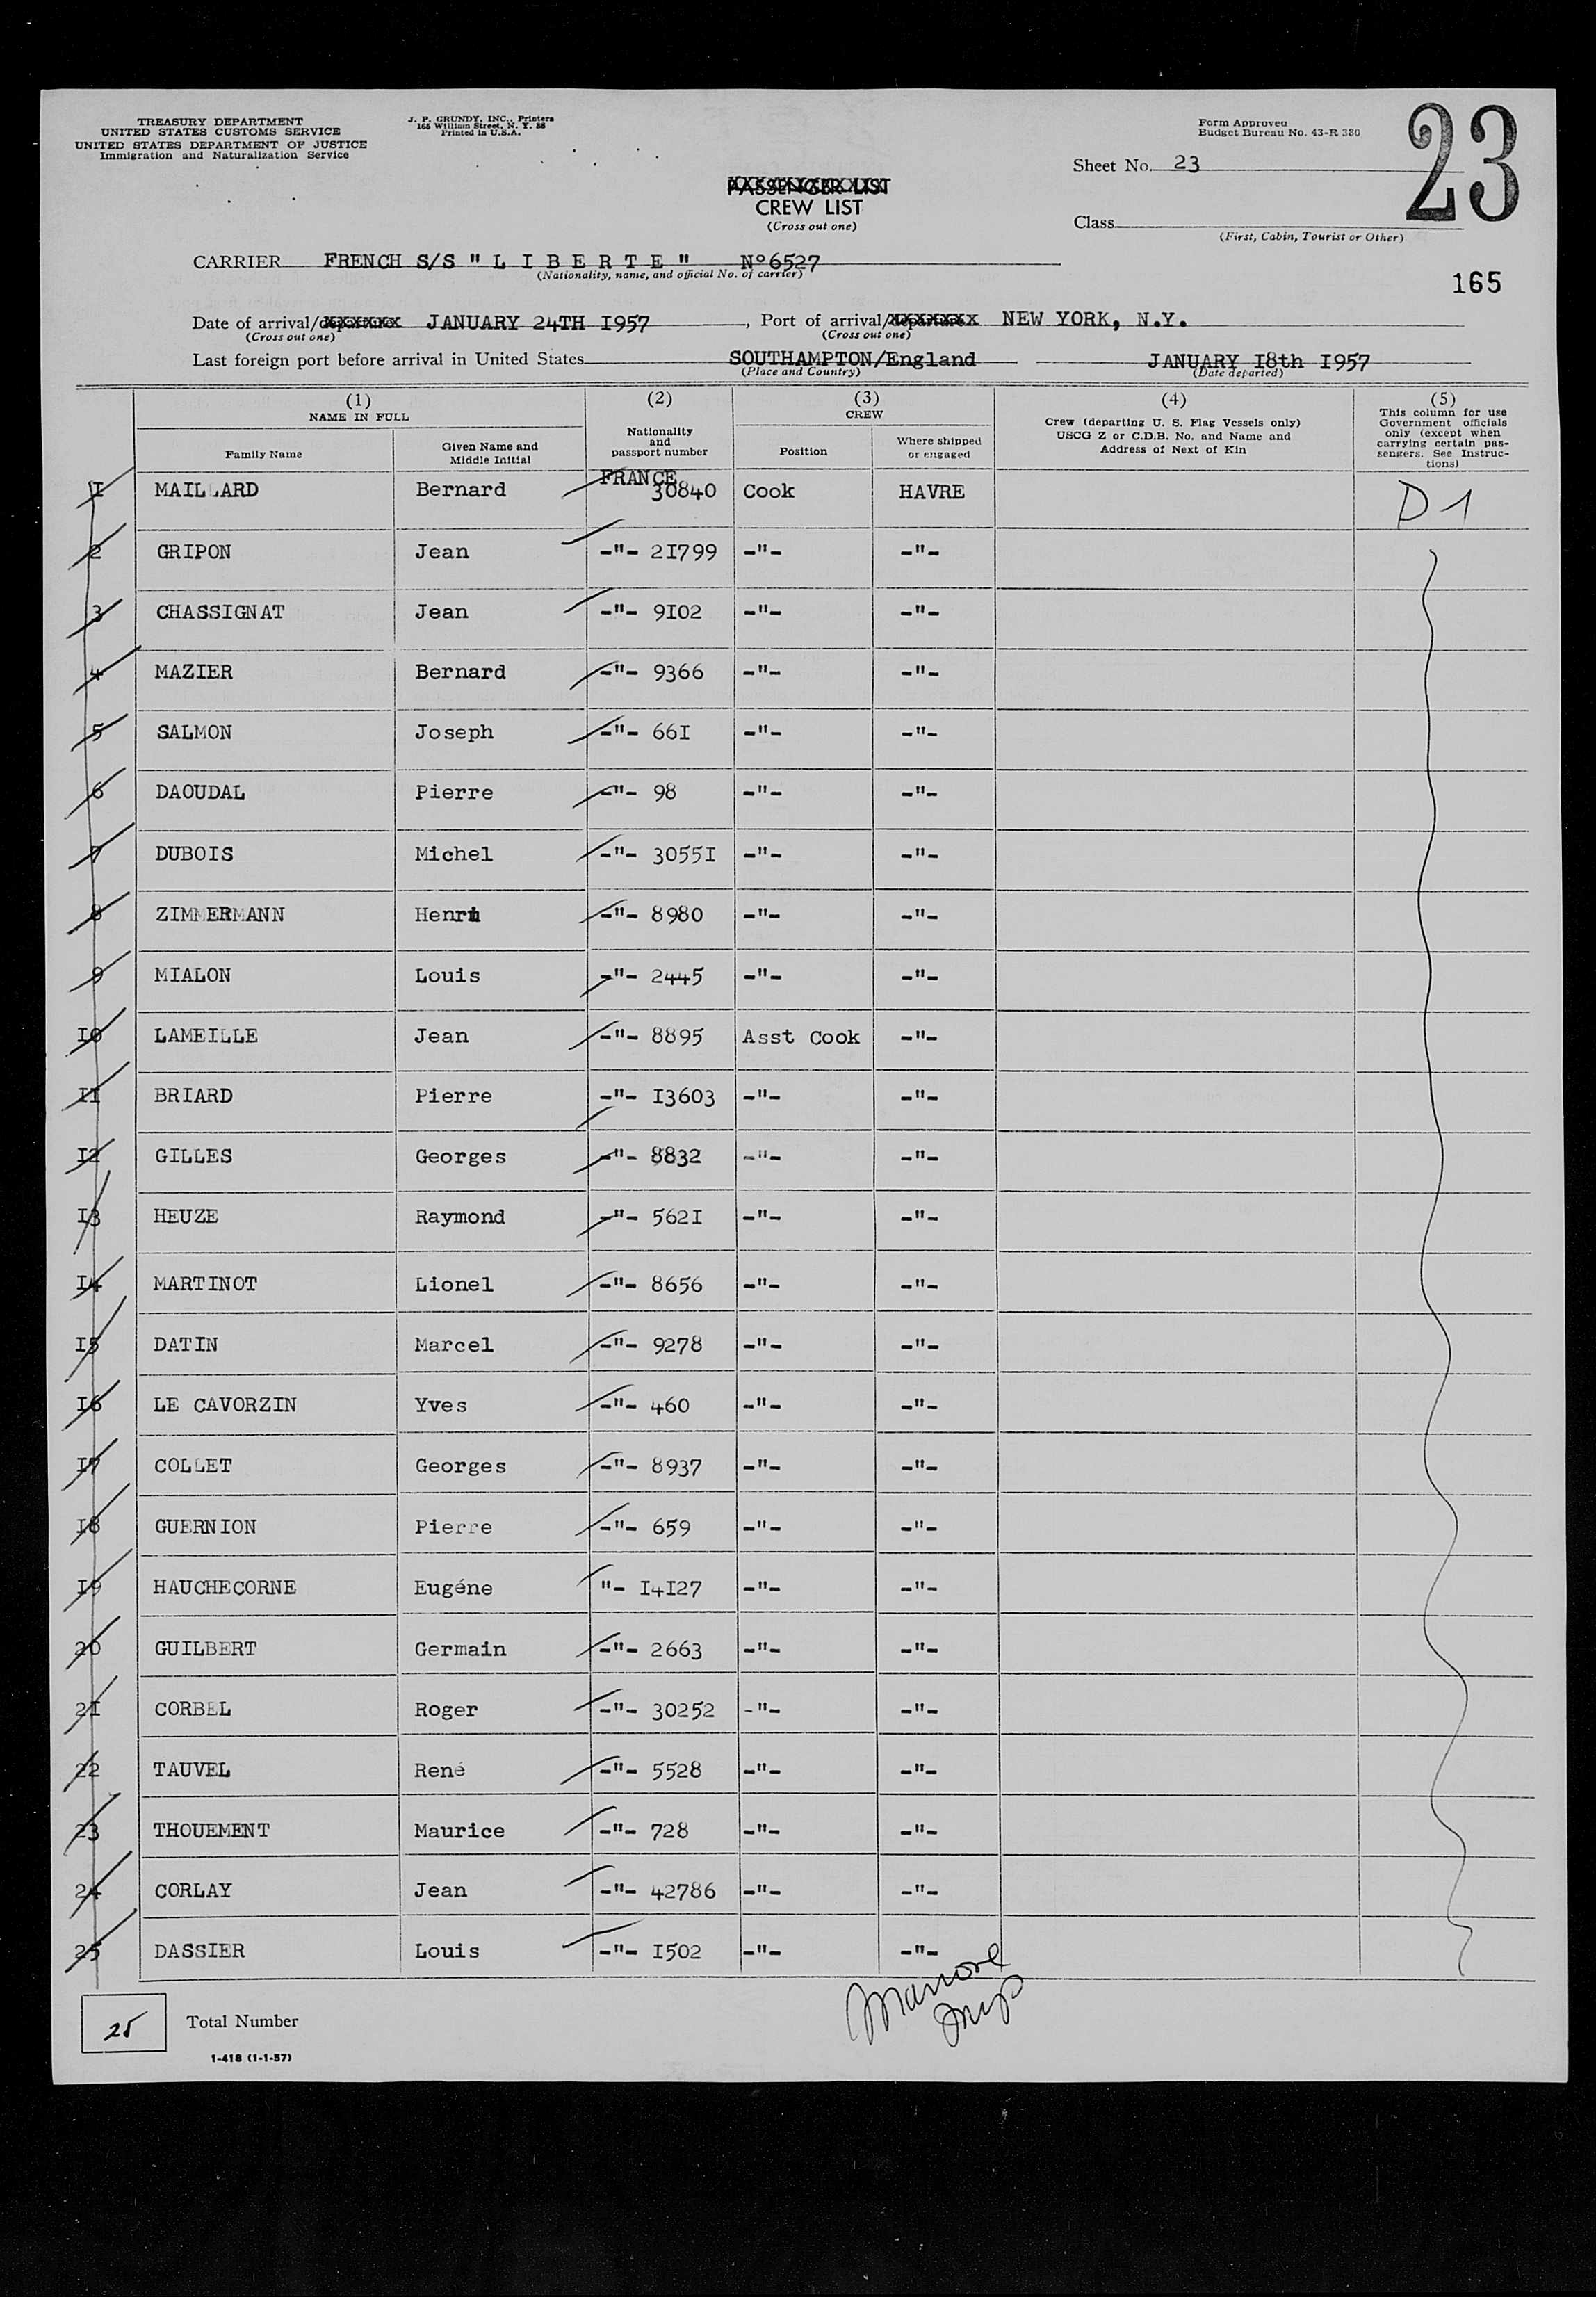 TREASURY DEPARTMENT
UNITED STATES CUSTOMS SERVICE
UNITED STATES DEPARTMENT OF JUSTICE
Immigration and Naturalization Service
J. P. GRUNDY, INC., Printers
165 William Street, N. Y. 38
Printed in U.S.A.
Form Approved
Budget Bureau No. 43-R 380
23
Sheet No. 23
PASSENGER LIST
CREW LIST
(Cross out one)
Class
(First, Cabin, Tourist or Other)
CARRIER FRENCH S/S " L I B E R T E " N°6527
(Nationality, name, and official No. of carrier)
165
Date of arrival/departure JANUARY 24TH I957, Port of arrival/departure NEW YORK, N.Y.
(Cross out one) (Cross out one)
Last foreign port before arrival in United States SOUTHAMPTON/England JANUARY I8th I957
(Place and Country) (Date departed)
(1) NAME IN FULL
Family Name
Given Name and Middle Initial
(2) Nationality and passport number
(3) CREW
Position
Where shipped or engaged
(4) Crew (departing U. S. Flag Vessels only) USCG Z or C.D.B. No. and Name and Address of Next of Kin
(5) This column for use Government officials only (except when carrying certain passengers. See Instructions)
FRANCE
I MAILLARD Bernard 30840 Cook HAVRE D 1
2 GRIPON Jean -"- 2I799 -"- -"-
3 CHASSIGNAT Jean -"- 9I02 -"- -"-
4 MAZIER Bernard -"- 9366 -"- -"-
5 SALMON Joseph -"- 66I -"- -"-
6 DAOUDAL Pierre -"- 98 -"- -"-
7 DUBOIS Michel -"- 3055I -"- -"-
8 ZIMMERMANN Henri -"- 8980 -"- -"-
9 MIALON Louis -"- 2445 -"- -"-
I0 LAMEILLE Jean -"- 8895 Asst Cook -"-
II BRIARD Pierre -"- I3603 -"- -"-
I2 GILLES Georges -"- 8832 -"- -"-
I3 HEUZE Raymond -"- 562I -"- -"-
I4 MARTINOT Lionel -"- 8656 -"- -"-
I5 DATIN Marcel -"- 9278 -"- -"-
I6 LE CAVORZIN Yves -"- 460 -"- -"-
I7 COLLET Georges -"- 8937 -"- -"-
I8 GUERNION Pierre -"- 659 -"- -"-
I9 HAUCHECORNE Eugéne "- I4I27 -"- -"-
20 GUILBERT Germain -"- 2663 -"- -"-
2I CORBEL Roger -"- 30252 -"- -"-
22 TAUVEL René -"- 5528 -"- -"-
23 THOUEMENT Maurice -"- 728 -"- -"-
24 CORLAY Jean -"- 42786 -"- -"-
25 DASSIER Louis -"- I502 -"- -"-
25 Total Number
1-418 (1-1-57)